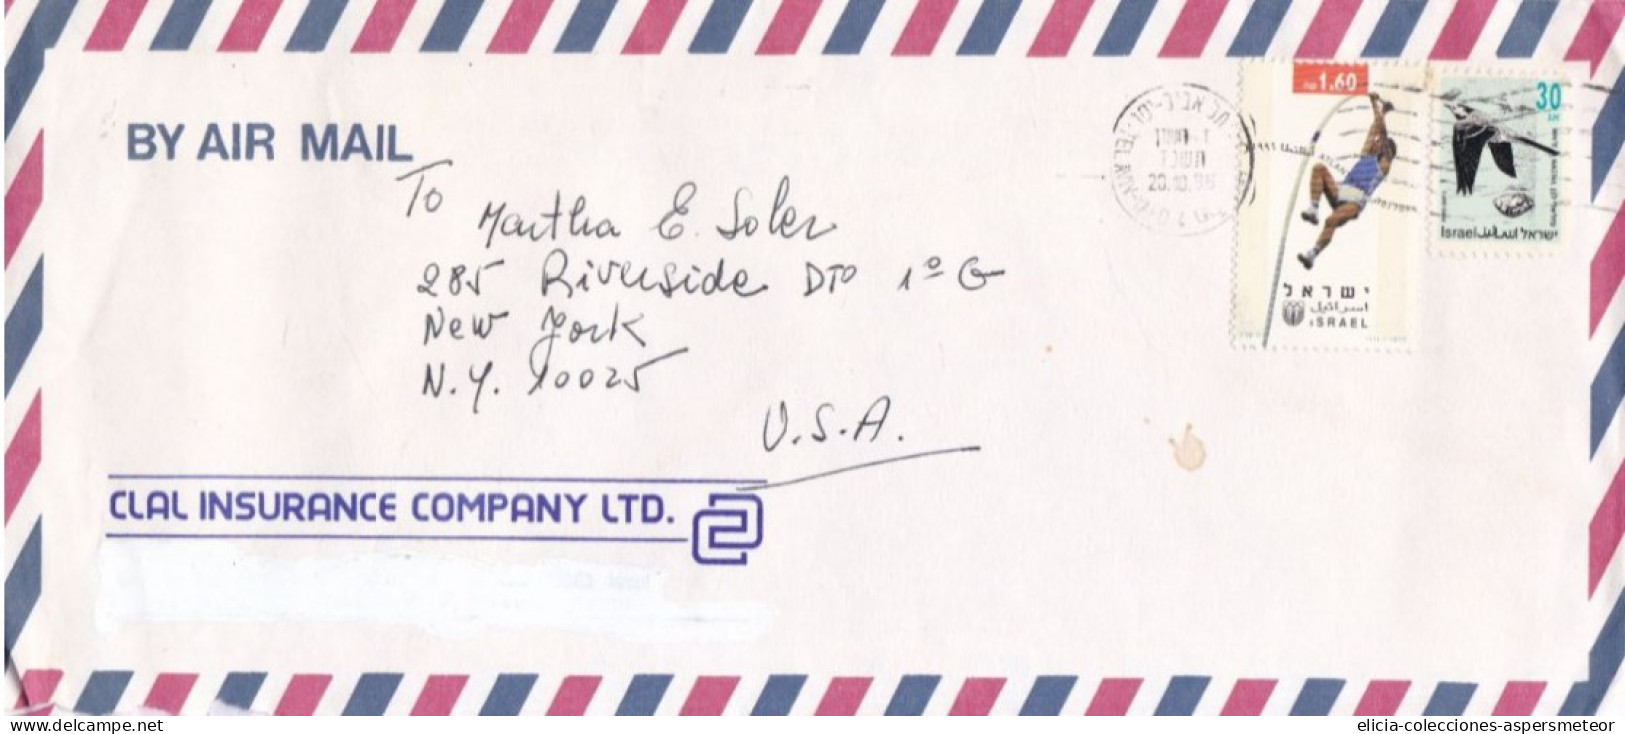 BY AIR MAIL
To
Martha E. Soler
285 Riverside DTO 1º G
New York
N.Y. 10025
U.S.A.
CLAL INSURANCE COMPANY LTD.
1.60
ישראל
اسرائيل
ISRAEL
30
Israel اسرائيل ישראל
תל אביב-יפו
TEL AVIV-YAFO
תשנ"ז
20.10.96
delcampe.net
elicia-colecciones-aspersmeteor